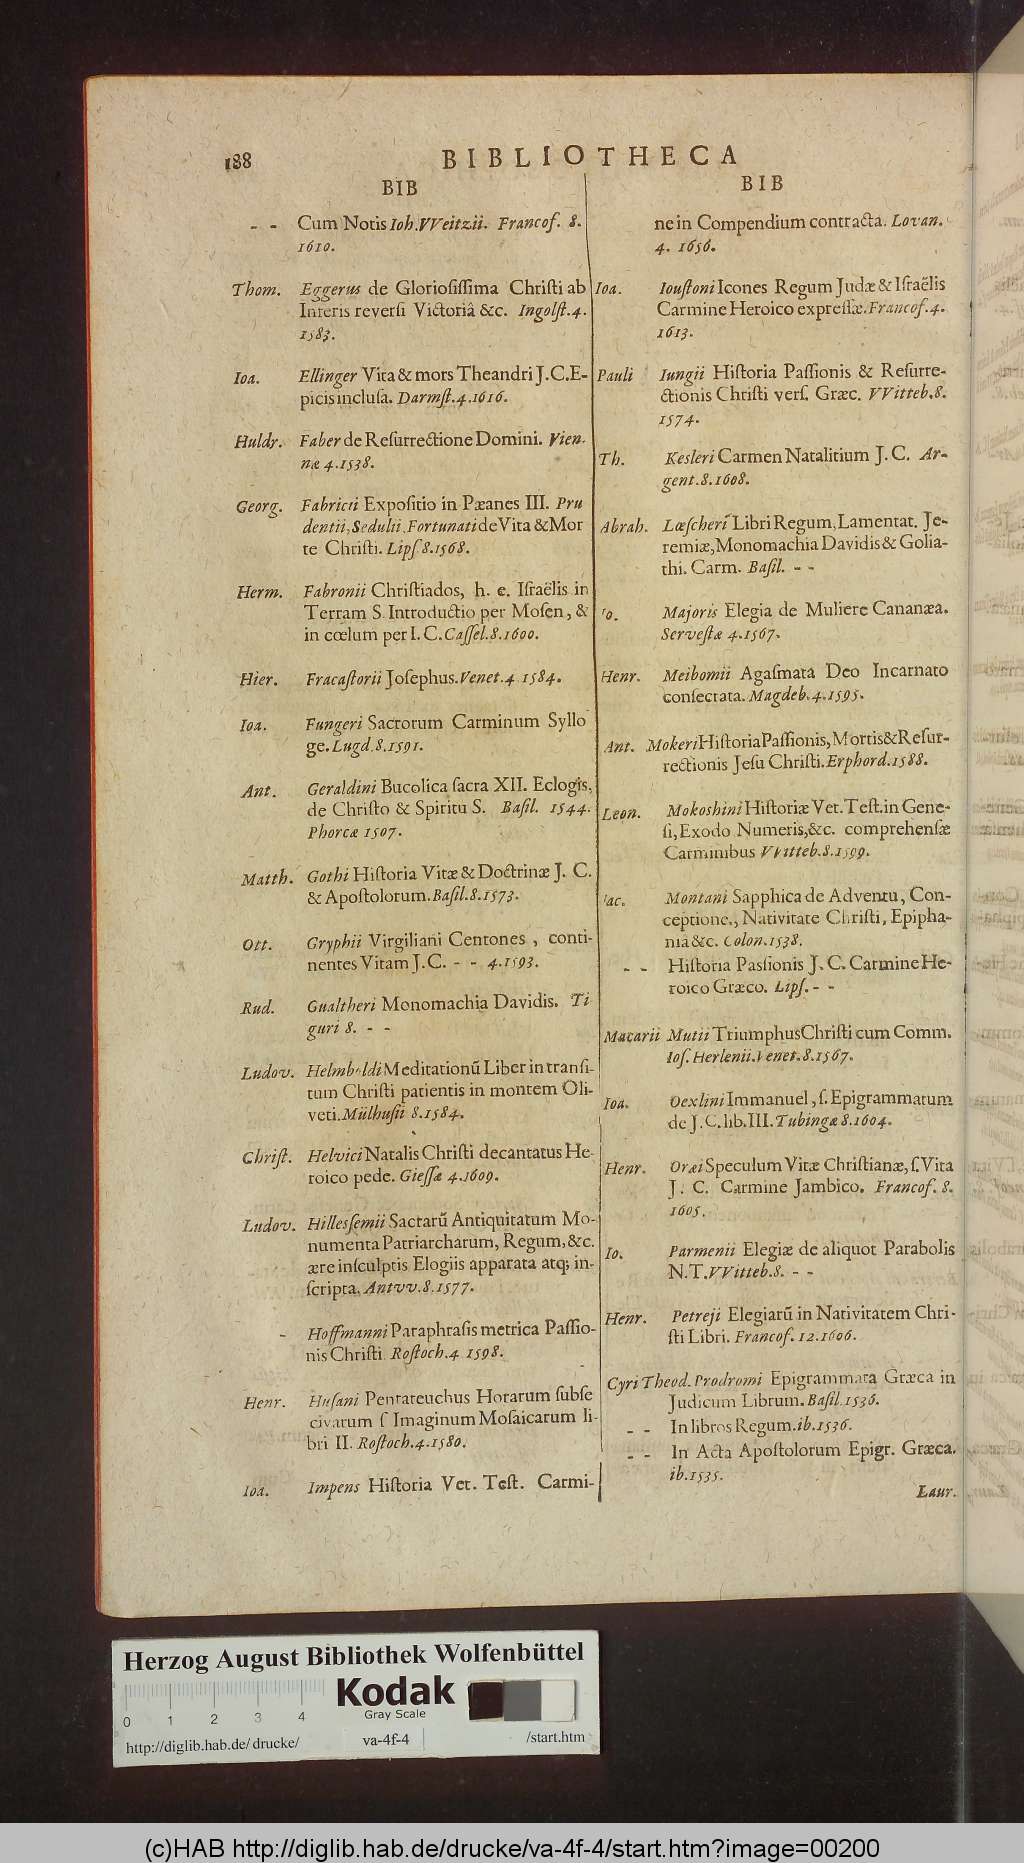 188 BIBLIOTHECA
BIB
- - Cum Notis Ioh. VVeitzii. Francof. 8.
1610.
Thom. Eggerus de Gloriosissima Christi ab
Inferis reversi Victoriâ &c. Ingolst. 4.
1583.
Ioa. Ellinger Vita & mors Theandri J. C. E-
picis inclusa. Darmst. 4. 1616.
Huldr. Faber de Resurrectione Domini. Vien-
næ 4. 1538.
Georg. Fabricii Expositio in Pæanes III. Pru
dentii, Sedulii, Fortunati de Vita & Mor
te Christi. Lips. 8. 1568.
Herm. Fabronii Christiados, h. e. Israëlis in
Terram S. Introductio per Mosen, &
in cœlum per I. C. Cassel. 8. 1600.
Hier. Fracastorii Josephus. Venet. 4 1584.
Ioa. Fungeri Sacrorum Carminum Syllo
ge. Lugd. 8. 1591.
Ant. Geraldini Bucolica sacra XII. Eclogis,
de Christo & Spiritu S. Basil. 1544.
Phorcæ 1507.
Matth. Gothi Historia Vitæ & Doctrinæ J. C.
& Apostolorum. Basil. 8. 1573.
Ott. Gryphii Virgiliani Centones, conti-
nentes Vitam J. C. - - 4. 1593.
Rud. Gualtheri Monomachia Davidis. Ti
guri 8. - -
Ludov. Helmboldi Meditationũ Liber in transi-
tum Christi patientis in montem Oli-
veti. Mülhusii 8. 1584.
Christ. Helvici Natalis Christi decantatus He-
roico pede. Giessæ 4. 1609.
Ludov. Hillessemii Sacrarũ Antiquitatum Mo-
numenta Patriarcharum, Regum, &c.
ære insculptis Elogiis apparata atq; in-
scripta. Antvv. 8. 1577.
- Hoffmanni Paraphrasis metrica Passio-
nis Christi. Rostoch. 4 1598.
Henr. Husani Pentateuchus Horarum subse
civarum s Imaginum Mosaicarum li-
bri II. Rostoch. 4. 1580.
Ioa. Impens Historia Vet. Test. Carmi-
BIB
ne in Compendium contracta. Lovan.
4. 1656.
Ioa. Ioustoni Icones Regum Judæ & Israëlis
Carmine Heroico expressæ. Francof. 4.
1613.
Pauli Iungii Historia Passionis & Resurre-
ctionis Christi vers. Græc. VVitteb. 8.
1574.
Th. Kesleri Carmen Natalitium J. C. Ar-
gent. 8. 1608.
Abrah. Lœscheri Libri Regum, Lamentat. Je-
remiæ, Monomachia Davidis & Golia-
thi. Carm. Basil. - -
o. Majoris Elegia de Muliere Cananæa.
Servestæ 4. 1567.
Henr. Meibomii Agasmata Deo Incarnato
consecrata. Magdeb. 4. 1595.
Ant. Mokeri Historia Passionis, Mortis & Resur-
rectionis Jesu Christi. Erphord. 1588.
Leon. Mokoshini Historiæ Vet. Test. in Gene-
si, Exodo Numeris, &c. comprehensæ
Carminibus VVitteb. 8. 1599.
ac. Montani Sapphica de Adventu, Con-
ceptione, Nativitate Christi, Epipha-
niâ &c. Colon. 1538.
- - Historia Passionis J. C. Carmine He-
roico Græco. Lips. - -
Macarii Mutii Triumphus Christi cum Comm.
Ios. Herlenii. Venet. 8. 1567.
Ioa. Oexlini Immanuel, s. Epigrammatum
de J. C. lib. III. Tubingæ 8. 1604.
Henr. Oræi Speculum Vitæ Christianæ, s. Vita
J. C. Carmine Jambico. Francof. 8.
1605.
Io. Parmenii Elegiæ de aliquot Parabolis
N. T. VVitteb. 8. - -
Henr. Petreji Elegiarũ in Nativitatem Chri-
sti Libri. Francof. 12. 1606.
Cyri Theod. Prodromi Epigrammata Græca in
Judicum Librum. Basil. 1536.
- - In libros Regum. ib. 1536.
- - In Acta Apostolorum Epigr. Græca.
ib. 1535.
Laur.
Herzog August Bibliothek Wolfenbüttel
Kodak
Gray Scale
0 1 2 3 4
http://diglib.hab.de/drucke/ va-4f-4 /start.htm
(c)HAB http://diglib.hab.de/drucke/va-4f-4/start.htm?image=00200